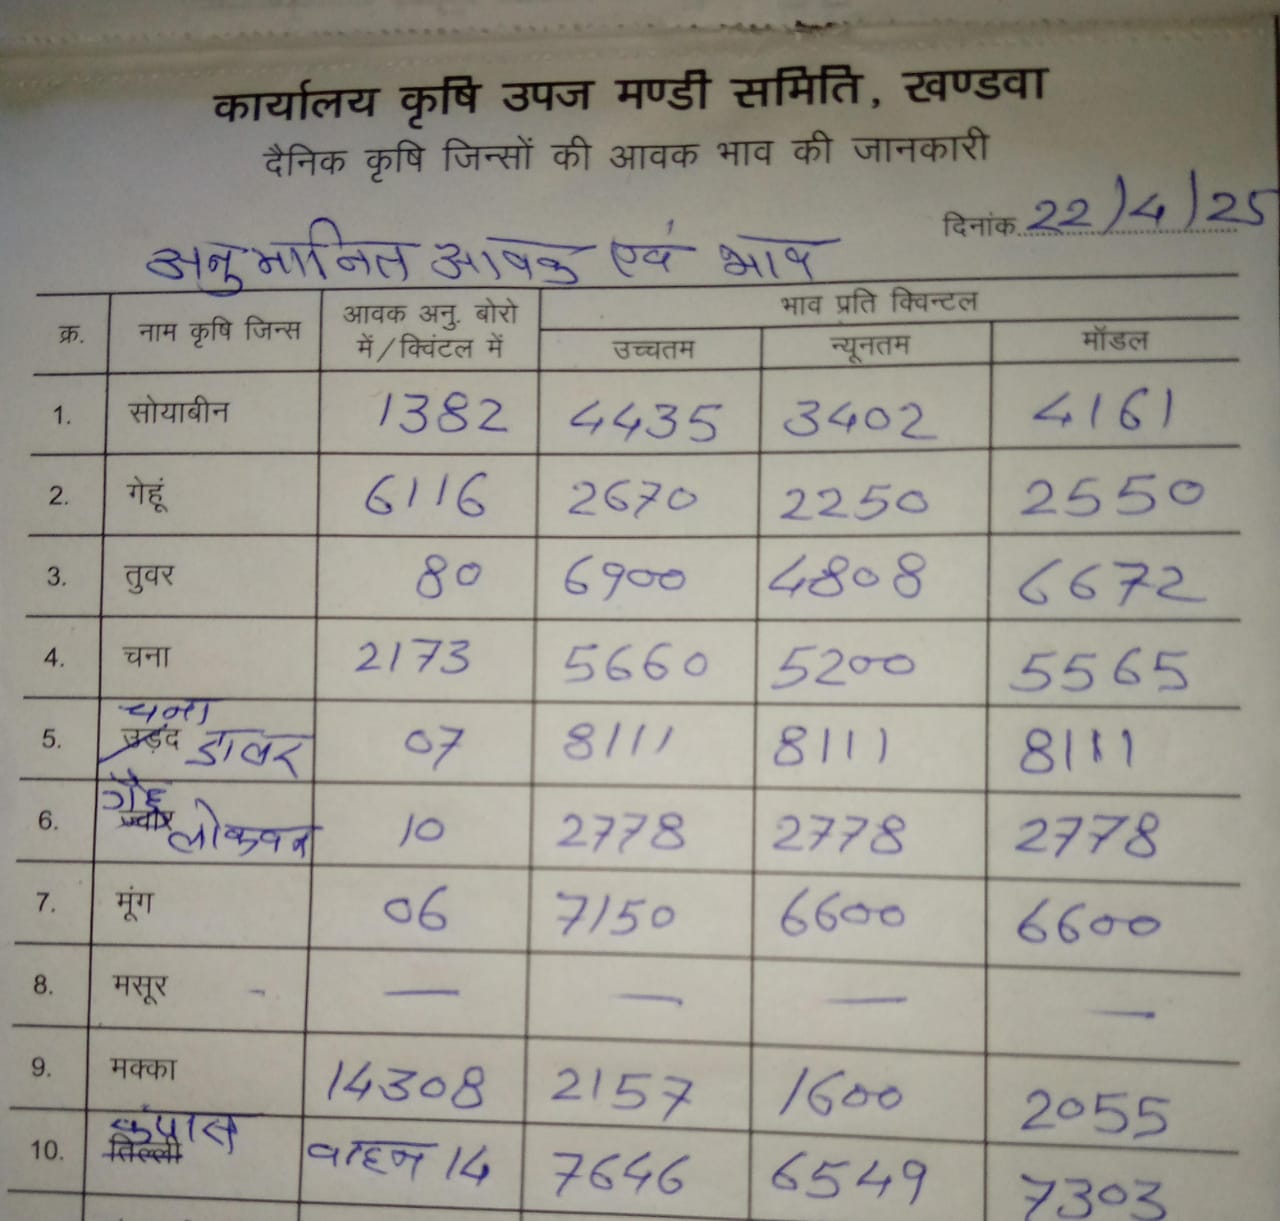 कार्यालय कृषि उपज मण्डी समिति, खण्डवा
दैनिक कृषि जिन्सों की आवक भाव की जानकारी
दिनांक 22/4/25
अनुमानित आवक एवं भाव
क्र. नाम कृषि जिन्स आवक अनु. बोरो में/क्विंटल में भाव प्रति क्विन्टल
उच्चतम न्यूनतम मॉडल
1. सोयाबीन 1382 4435 3402 4161
2. गेहूं 6116 2670 2250 2550
3. तुवर 80 6900 4808 6672
4. चना 2173 5660 5200 5565
5. उड़द चना डालर 07 8111 8111 8111
6. ज्वार गेहू लोकवन 10 2778 2778 2778
7. मूंग 06 7150 6600 6600
8. मसूर - — — — —
9. मक्का 14308 2157 1600 2055
10. तिल्ली कपास वाहन 14 7646 6549 7303